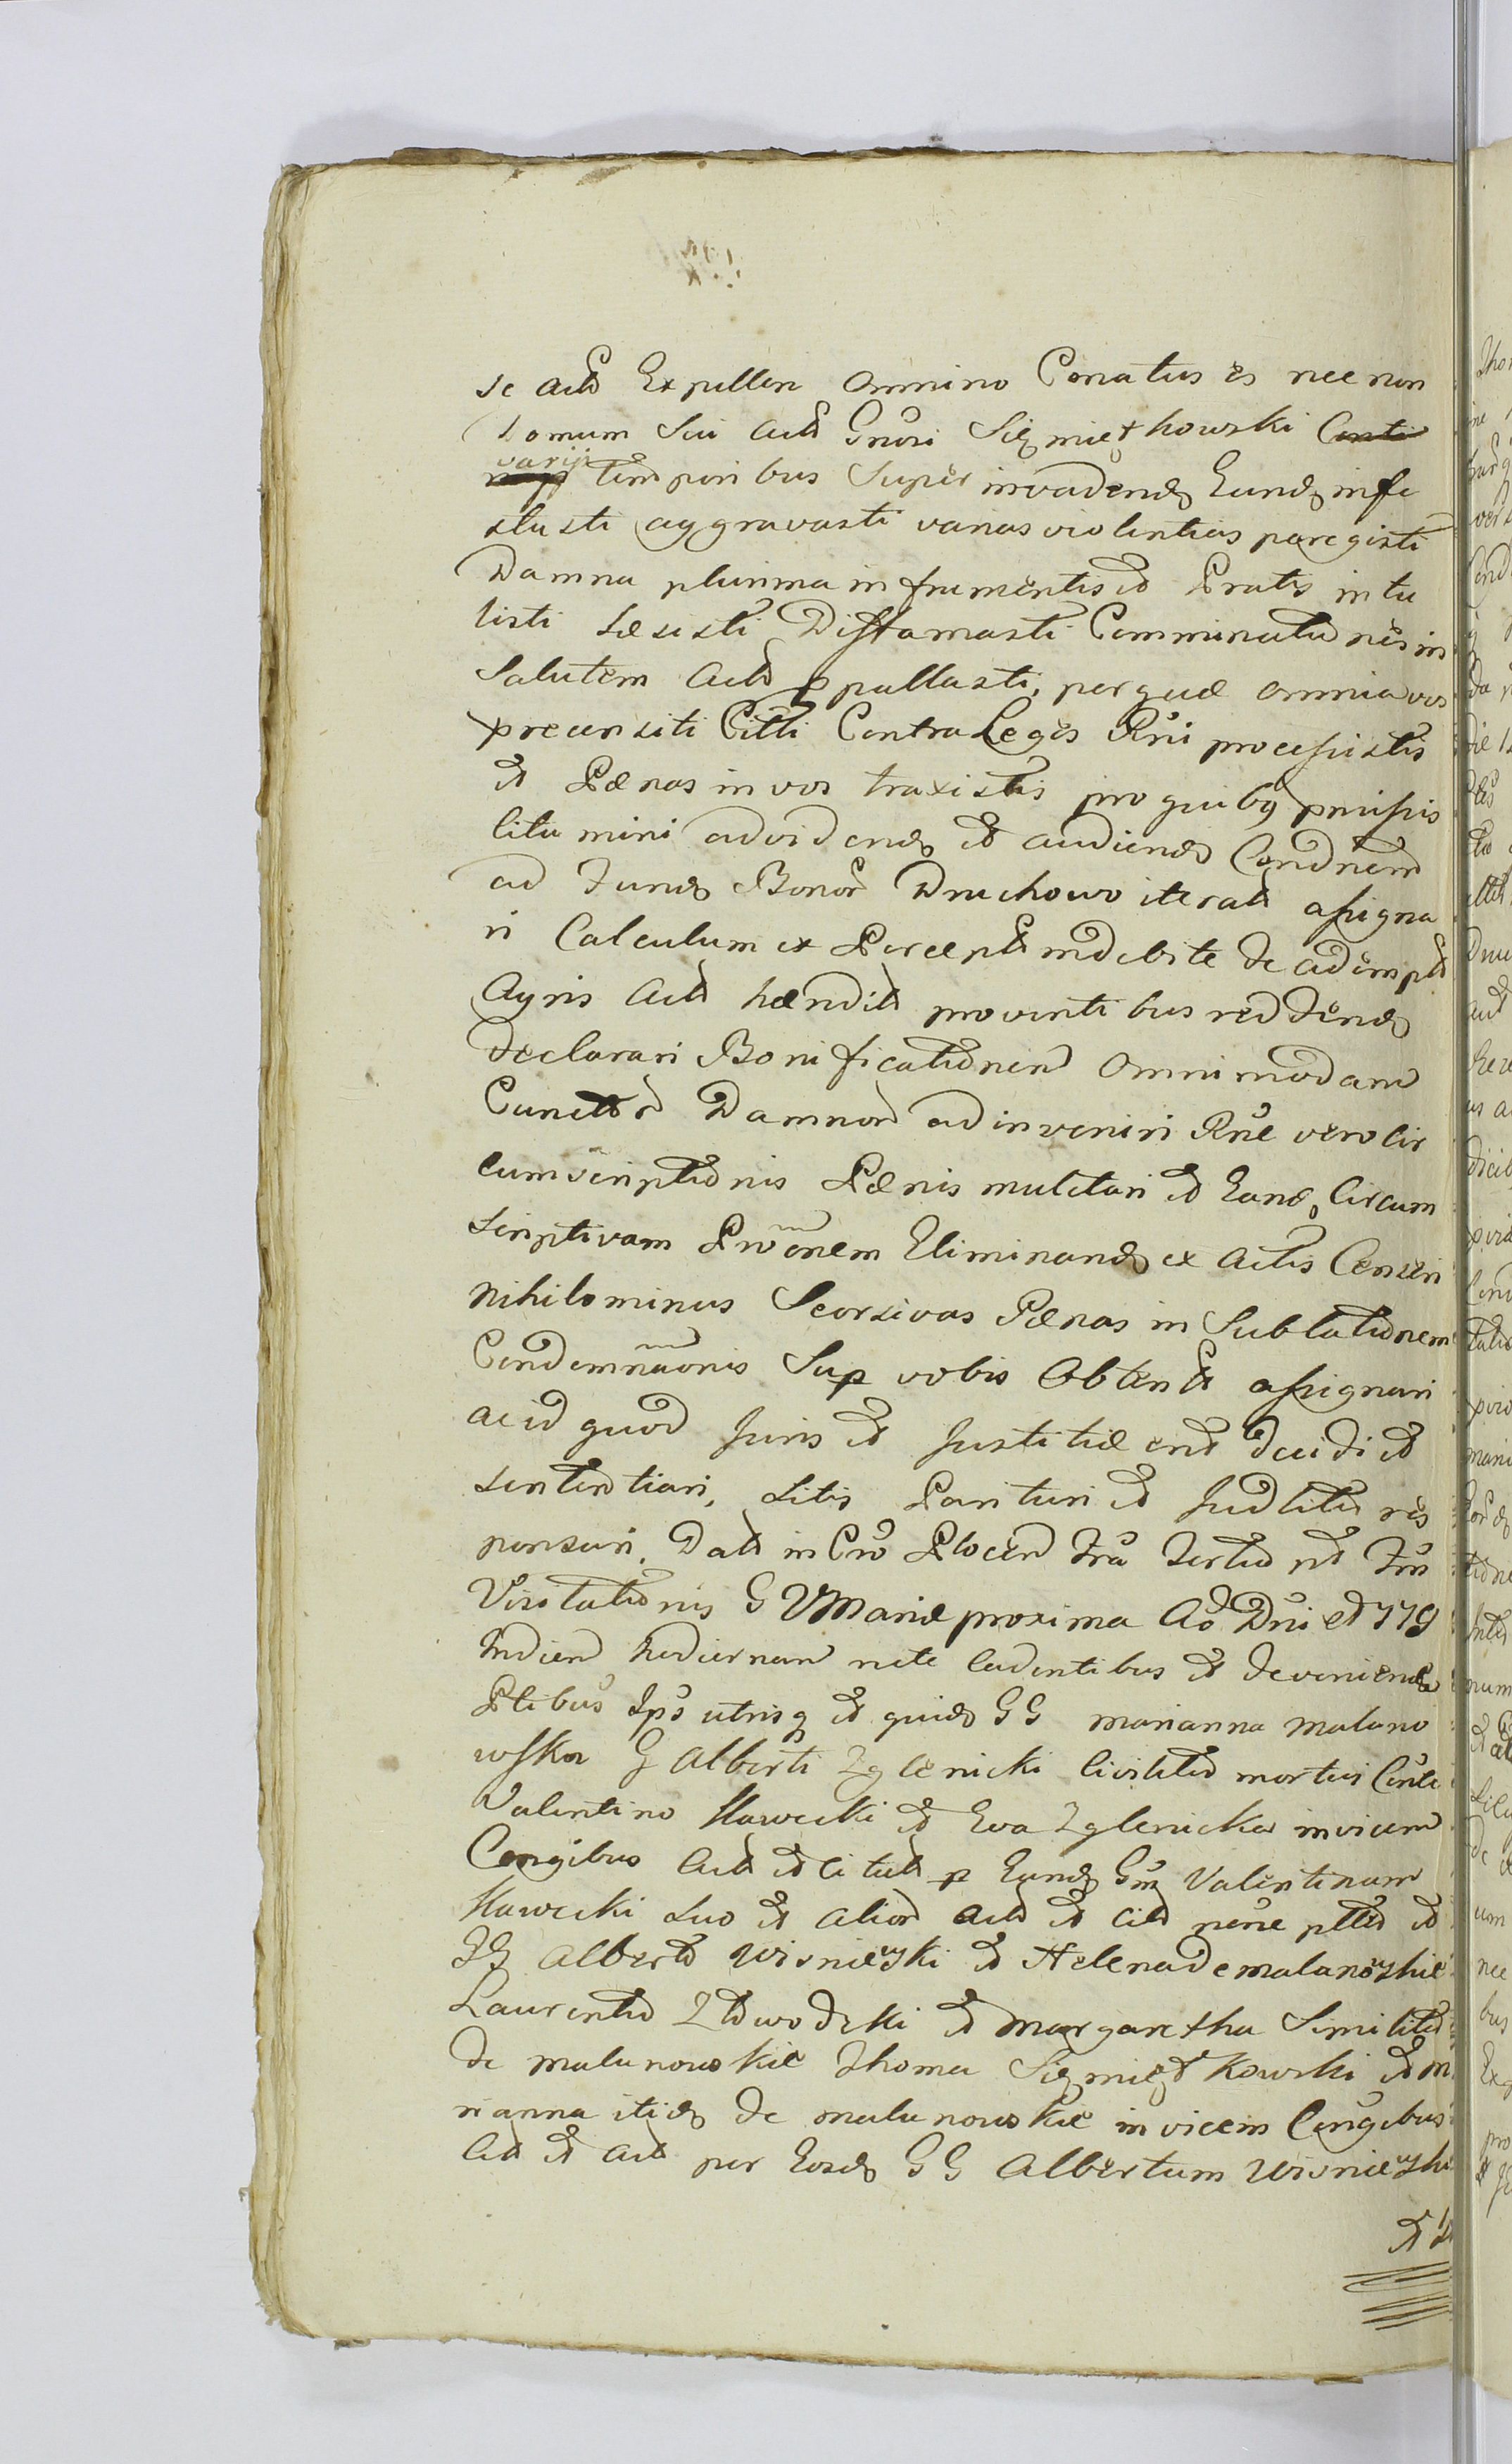 se actd Expellere omnino Conatus es nec non
Domum Sui actd Gnosi Siemiętkowski Conti
varijs temporibus Super invadend Eund infe
stasti aggravasti varias violentias peregisti
Damna plurima in frumentis et Pratis intu
listi Læsisti Diffamasti Comminationes in
Salutem Actd Epullasti, per quæ omnia vos
præcensiti Citti Contra Leges Rni processistis
et Pænas in vos traxistis pro quibq pmissis
citamini advidend et audiend Condnem
ad Fund Bonor Druchowo iterato assigna
ri Calculum ex Perceptd indebite de ademptd
Agris Actd hændit proventibus reddend
declarari Bonificationem omnimodam
Cunctor Damnor adinveniri Rne vero Cir
cumscriptionis Pænis mulctari et Eand Circum
scriptivam Prooenem Eliminand ex Actis Censeri
nihilominus Seorsivas Pænas in Sublationem
Condemnaonis Sup vobis Obtent assignari
ac id quod Juris et Justitiæ erit decidi et
sententiari, Litis Parituri et Judlitd res
ponsuri, Datt in Cro Plocen Fra Tertia pt Ftm
Visitationis G V Mariæ proxima Ao Dni et 779
Indiem hodiernam rite Cadentibus et deveniend
Ptibus Ips utrisq et quid GG Marianna Malano
wska G Alberti Zglenicki Civilitd mortui Cnte
Valentino Hawecki et Eva Zglenicka invicem
Congibus Actd et Citatd p Eund Gm Valentinum
Hawecki Suo et alior Actd et Citd nene plltd et
GG Alberto Wisniewski et Helena de Malanowskie
Laurentio Zdwodzki et Margaretha Similitd
de Malunowskie Thoma Siemiętkowski et M
rianna itid de Malunowskie invicem Congibus
Citd et Actd per Eosd GG Albertum Wisniewski
et